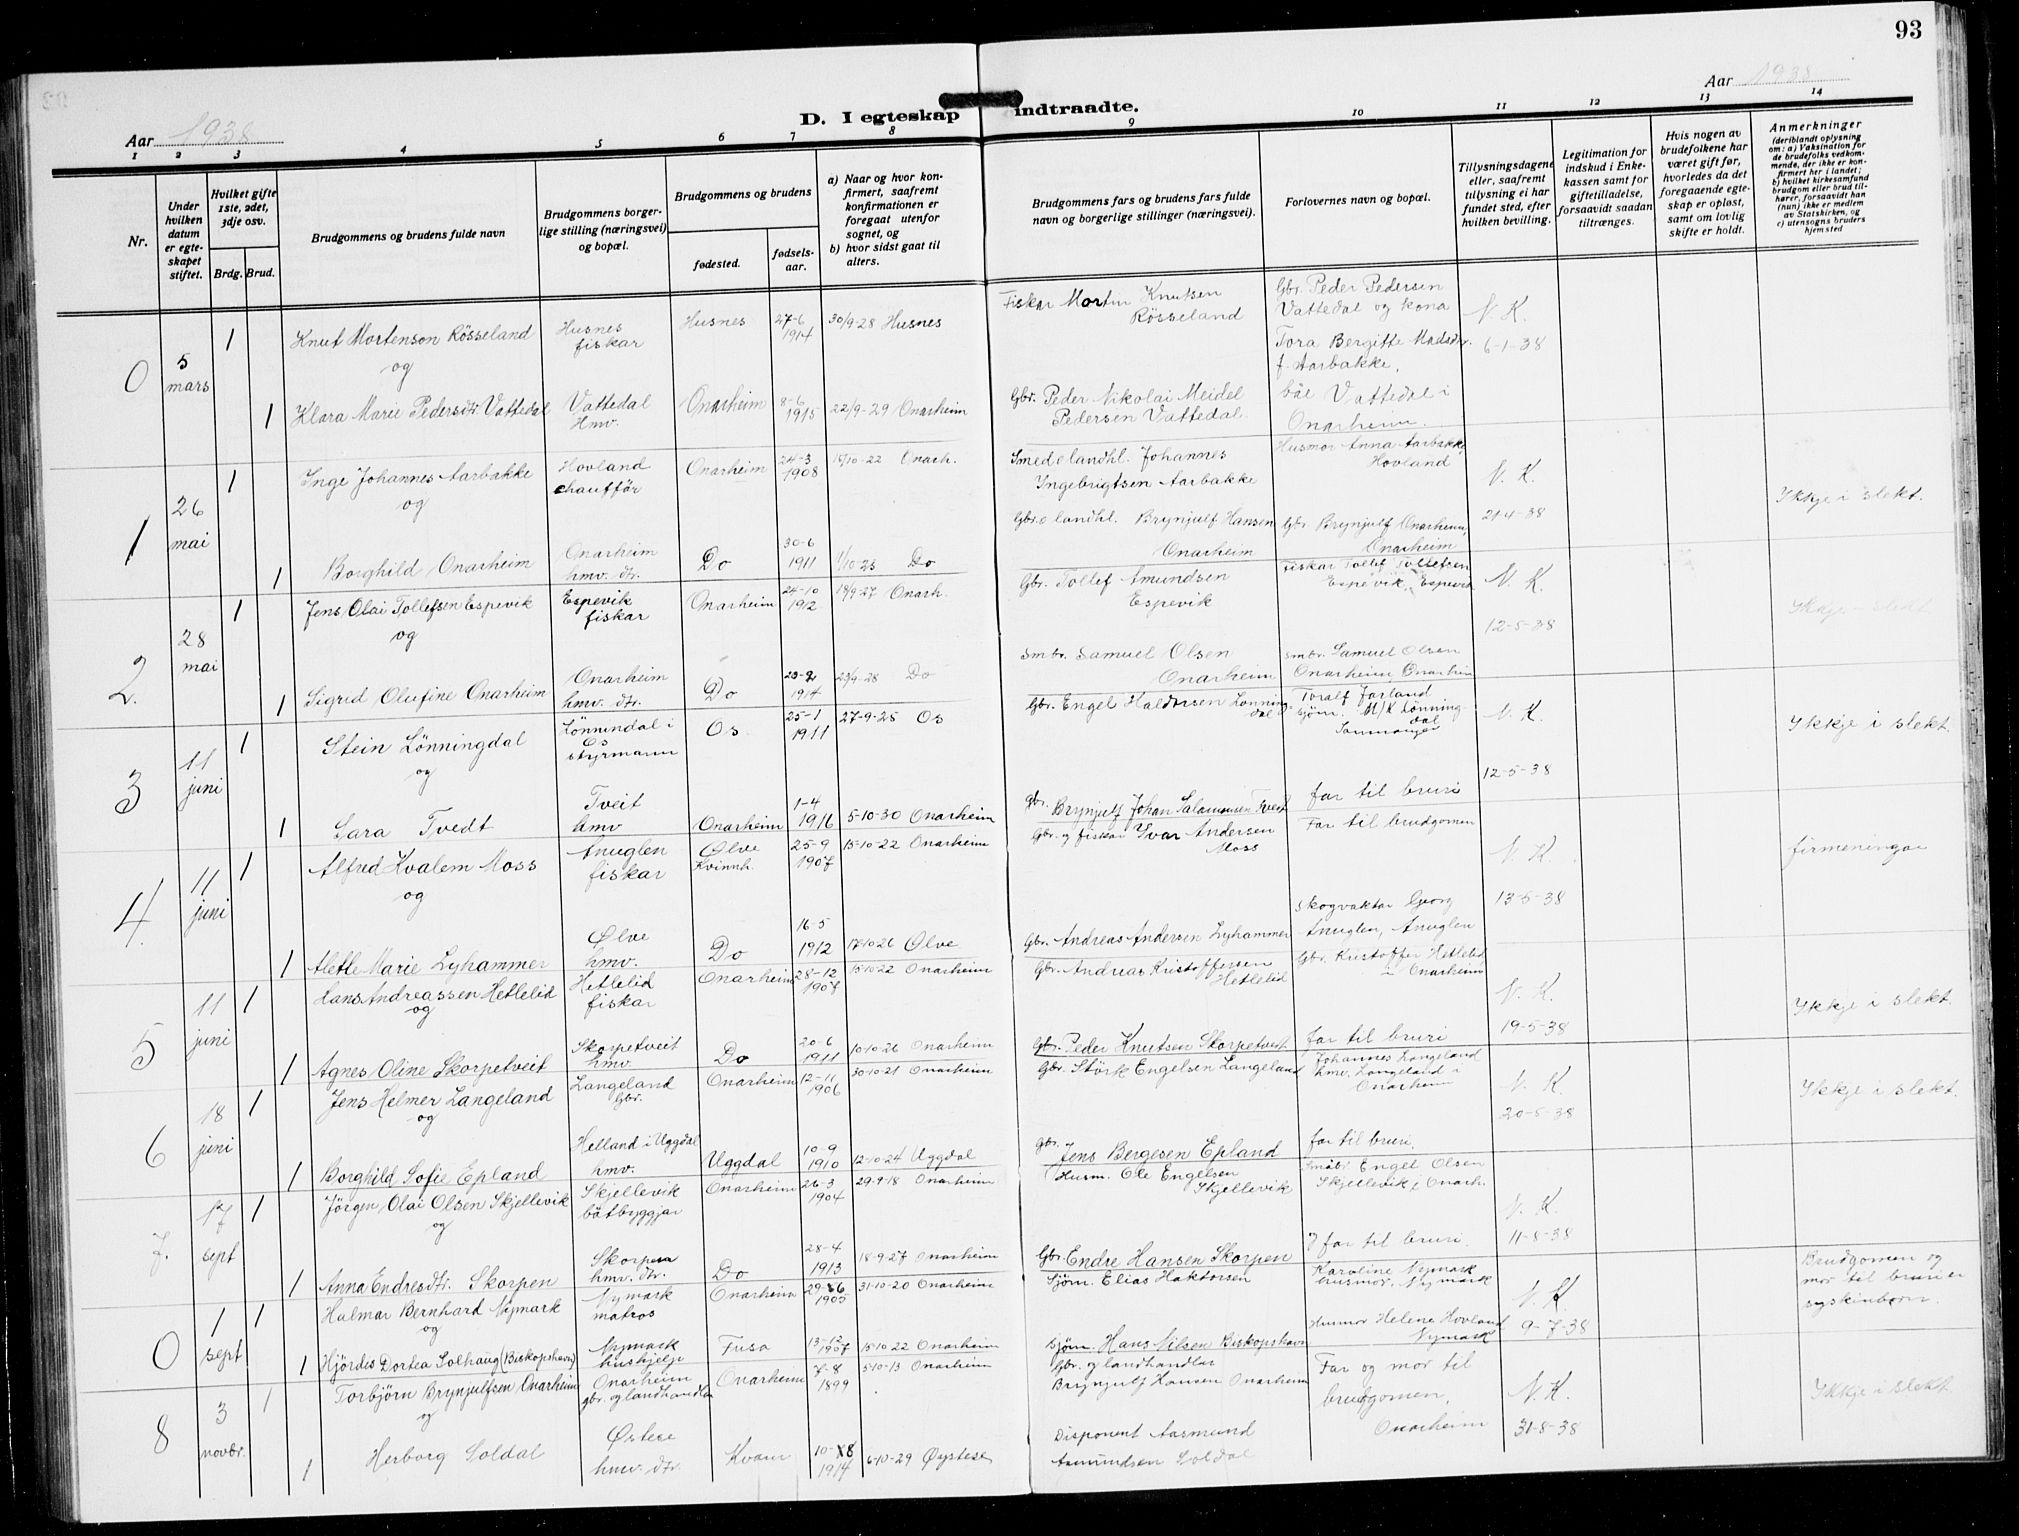 93
Aar 1938
Aar 1938
D. I egteskap indtraadte.
1 2 3 4 5 6 7 8 9 10 11 12 13 14
Nr.
Under hvilken datum er egteskapet stiftet.
Hvilket gifte 1ste, 2det, 3dje osv.
Brdg. Brud.
Brudgommens og brudens fulde navn
Brudgommens borgerlige stilling (næringsvei) og bopæl.
Brudgommens og brudens
fødested.
fødselsaar.
a) Naar og hvor konfirmert, saafremt konfirmationen er foregaat utenfor sognet, og
b) hvor sidst gaat til alters.
Brudgommens fars og brudens fars fulde navn og borgerlige stillinger (næringsvei).
Forlovernes navn og bopæl.
Tillysningsdagene eller, saafremt tillysning ei har fundet sted, efter hvilken bevilling.
Legitimation for indskud i Enkekassen samt for giftetilladelse, forsaavidt saadan tiltrænges.
Hvis nogen av brudefolkene har været gift før, hvorledes da det foregaaende egteskap er opløst, samt om lovlig skifte er holdt.
Anmerkninger
(deriblandt oplysning om: a) Vaksination for de brudefolks vedkommende, der ikke er konfirmert her i landet; b) hvilket kirkesamfund brudgom eller brud tilhører, forsaavidt han (hun) ikke er medlem av Statskirken, og c) utensogns bruders hjemsted
0 5 mars 1 Knut Mortenson Rösseland Husnes fiskar Husnes 27-6 1914 30/9-28 Husnes Fiskar Mortin Knutsen Rösseland Gbr. Peder Pedersen Vattedal og kona V. K.
og Tora Bergitte Madsdtr. f. Aarbakke, 6-1-38
1 Klara Marie Pedersdtr. Vattedal Vattedal Hmv. Onarheim 8-6 1915 22/9-29 Onarheim Gbr. Peder Nikolai Meidel Pedersen Vattedal båe Vattedal i Onarheim.
1 26 mai 1 Inge Johannes Aarbakke Hovland chauffør Onarheim 24-3 1908 15/10-22 Onarh. Smed o landhl. Johannes Ingebrigtsen Aarbakke Husmor Anna Aarbakke, Hovland V. K. Ikkje i slekt.
og
1 Borghild Onarheim Onarheim hmv. dtr. Do 30-6 1911 1/10-25 Do Gbr. o landhl. Brynjulf Hansen Onarheim Gbr Brynjulf Onarheim, Onarheim 21-4-38
2. 28 mai 1 Jens Olai Tollefsen Espevik Espevik fiskar Onarheim 24-10 1912 18/9-27 Onarh. Gbr. Tollef Amundsen Espevik Fiskar Tollef Tollefsen Espevik, Espevik V. K. Ikkje i slekt
og
1 Sigrid Olufine Onarheim Onarheim hmv. dtr. Do 23-2 1914 23/9-28 Do Smbr. Samuel Olsen Onarheim Smbr. Samuel Olsen Onarheim, Onarheim 12-5-38
3 11 juni 1 Stein Lönningdal Lönnindal i Os styrmann Os 25-1 1911 27-9-25 Os Gbr. Engel Haldorsen Lönningdal Toralf Jarland sjöm. M/K Lönningdal V. K. Ikkje i slekt.
og
1 Sara Tvedt Tveit hmv Onarheim 1-4 1916 5-10-30 Onarheim Gbr. Brynjulf Johan Salomonsen Tvedt far til bruri 12-5-38
4. 11 juni 1 Alfred Kvalem Moss Anuglen fiskar Ølve Kvinnh. 25-9 1907 15-10-22 Onarheim Gbr. og fiskar Ivar Andersen Moss Far til brudgomen V. K. firmeningar
og
1 Aletle Marie Lyhammer Ølve hmv. Do 16-5 1912 17-10-26 Ølve Gbr. Andreas Andersen Lyhammer Skogvaktar Georg Anuglen, Anuglen 13-5-38
5 11 juni 1 Hans Andreassen Hetlelid Hetlelid fiskar Onarheim 28-12 1907 15-10-22 Onarheim Gbr. Andreas Kristoffersen Hetlelid Gbr. Kristoffer Hetlelid i Onarheim V. K. Ikkje i slekt.
og
1 Agnes Oline Skorpetveit Skorpetveit hmv. Do 20-6 1911 10-10-26 Onarheim Gbr. Peder Knutsen Skorpetveit far til bruri 19-5-38
6 18 juni 1 Jens Helmer Langeland Langeland Gbr. Onarheim 12-11 1906 30-10-21 Onarheim Gbr. Störk Engelsen Langeland Johannes Langeland hmv. Langeland i Onarheim V. K. Ikkje i slekt.
og
1 Borghild Sofie Epland Helland i Uggdal hmv. Uggdal 10-9 1910 12-10-24 Uggdal Gbr. Jens Bergesen Epland far til bruri. 20-5-38
7. 17 sept 1 Jörgen Olai Olsen Skjellevik Skjellevik båtbyggjar Onarheim 26-3 1904 29-9-18 Onarheim Husm. Ole Engelsen Skjellevik Småbr. Engel Olsen Skjellevik, Onarh. V. K.
og
1 Anna Endresdtr. Skorpen Skorpen hmv. dtr. Do 28-4 1913 18-9-27 Onarheim Gbr. Endre Hansen Skorpen far til bruri. 11-8-38
0 1 sept 1 Halmar Bernhard Nymark Nymark matros Onarheim 29-6 1905 31-10-20 Onarheim Sjöm. Elias Haktorsen Karoline Nymark husmor. Nymark V. K. Brudgomen og mor til bruri er syskinborn.
og
1 Hjördis Dortea Solhaug (Biskopshavn) Nymark hushjelp Fusa 13-12 1907 15-10-22 Onarheim Sjöm. Hans Nilsen Biskopshavn Husmor Helene Hovland Nymark 9-7-38
8 3 novbr. 1 Torbjörn Brynjulfsen Onarheim Onarheim gbr. og landhandlar Onarheim 7-8 1899 5-10-13 Onarheim Gbr. og landhandlar Brynjulf Hansen Onarheim Far og mor til brudgomen, Onarheim V. K. Ikkje i slekt
og
1 Herborg Soldal Østese hmv. dtr. Kvam 10-8 1914 6-10-29 Øystese Disponent Aasmund Asmundsen Soldal 31-8-38